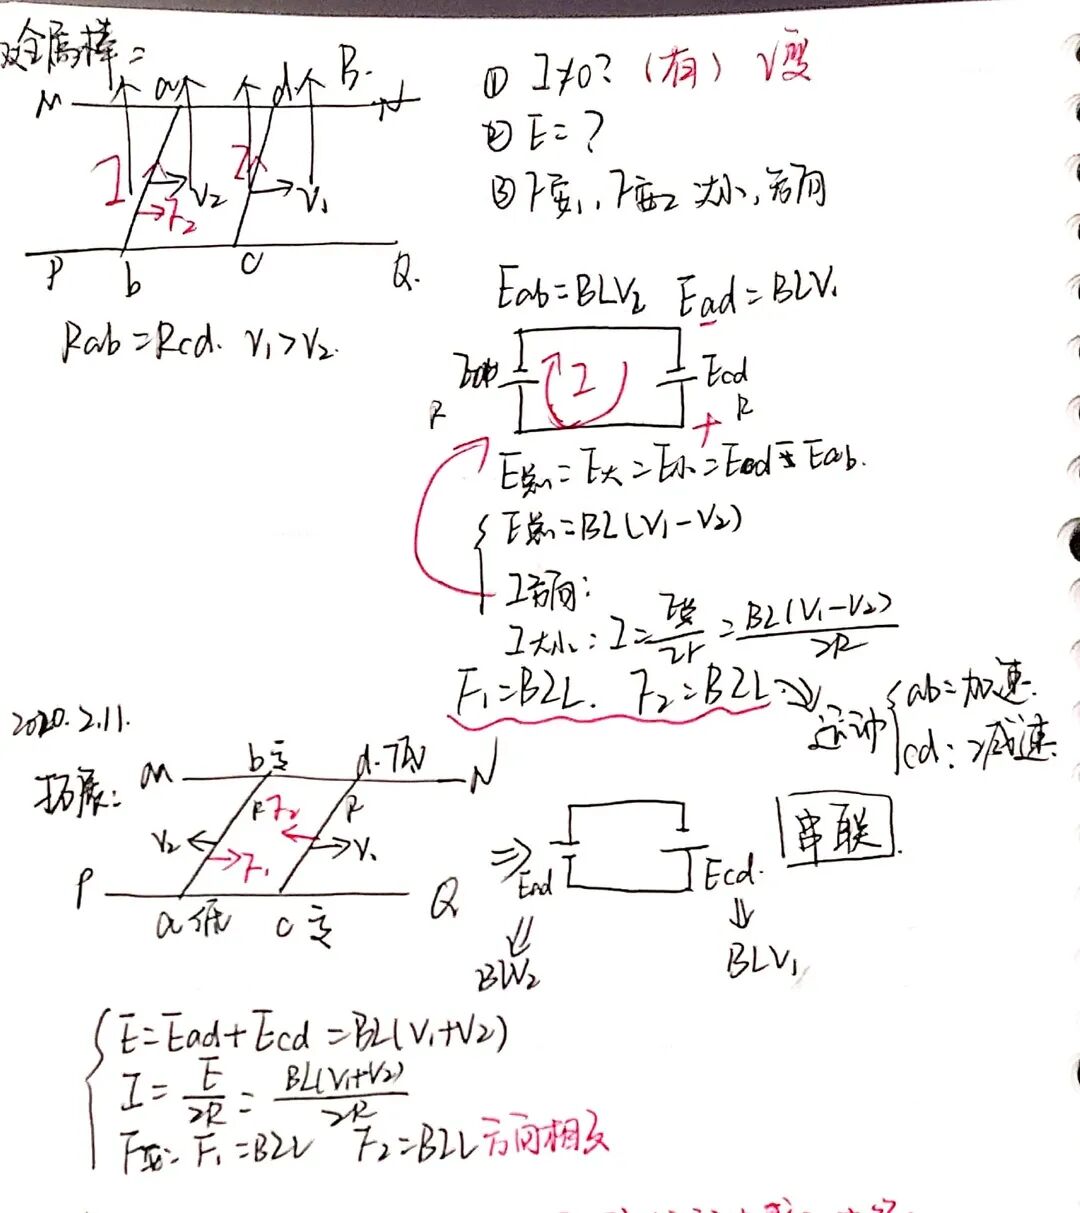 双金属棒:
M a d B. N
I v₂ F₂ I v₁
P b c Q.
Rab=Rcd. v₁>v₂.
① I≠0? (有) v变
② E=?
③ F安₁, F安₂ 大小, 方向
Eab=BLV₂ Ead=BLV₁
Eab I Ecd
R + R
E总=E大=E小=Ecd Eab.
E总=BL(V₁-V₂)
I方向:
I大小: I=E总/2r=BL(V₁-V₂)/2R
F₁=BIL. F₂=BIL. ⇒ 运动 { ab=加速.
cd: 减速.
2020.2.11.
拓展: M b高 d.低 N
R F₂ R
v₂ F₁ v₁
P a低 c高 Q
⇒ Ead Ecd. 串联.
BLV₂ BLV₁
E=Ead+Ecd=BL(V₁+V₂)
I=E/2R=BL(V₁+V₂)/2R
F安: F₁=BIL F₂=BIL 方向相反